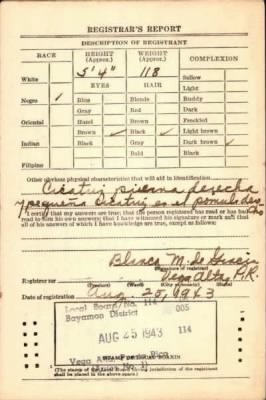 REGISTRAR'S REPORT
DESCRIPTION OF REGISTRANT
RACE HEIGHT (Approx.) WEIGHT (Approx.) COMPLEXION
5' 4" 118
White Sallow
EYES HAIR Light
Negro ✓ Blue Blonde Ruddy
Gray Red Dark
Oriental Hazel Brown Freckled
Brown ✓ Black ✓ Light brown
Indian Black Gray Dark brown ✓
Bald Black
Filipino
Other obvious physical characteristics that will aid in identification
Cicatriz pierna derecha
y pequeña cicatriz en el pomulo
I certify that my answers are true; that the person registered has read or has had read to him his own answers; that I have witnessed his signature or mark and that all of his answers of which I have knowledge are true, except as follows:
Blanca M. de
(Signature of registrar)
Registrar for Vega Alta, P.R.
(Precinct) (Ward) (City or county) (State)
Date of registration Aug 25, 1943
Local Board No. 114
Bayamon District 005
AUG 25 1943 114
Vega Alta, Puerto Rico
No. 11
(The stamp of the Local Board having jurisdiction of the registrant shall be placed in the above space.)